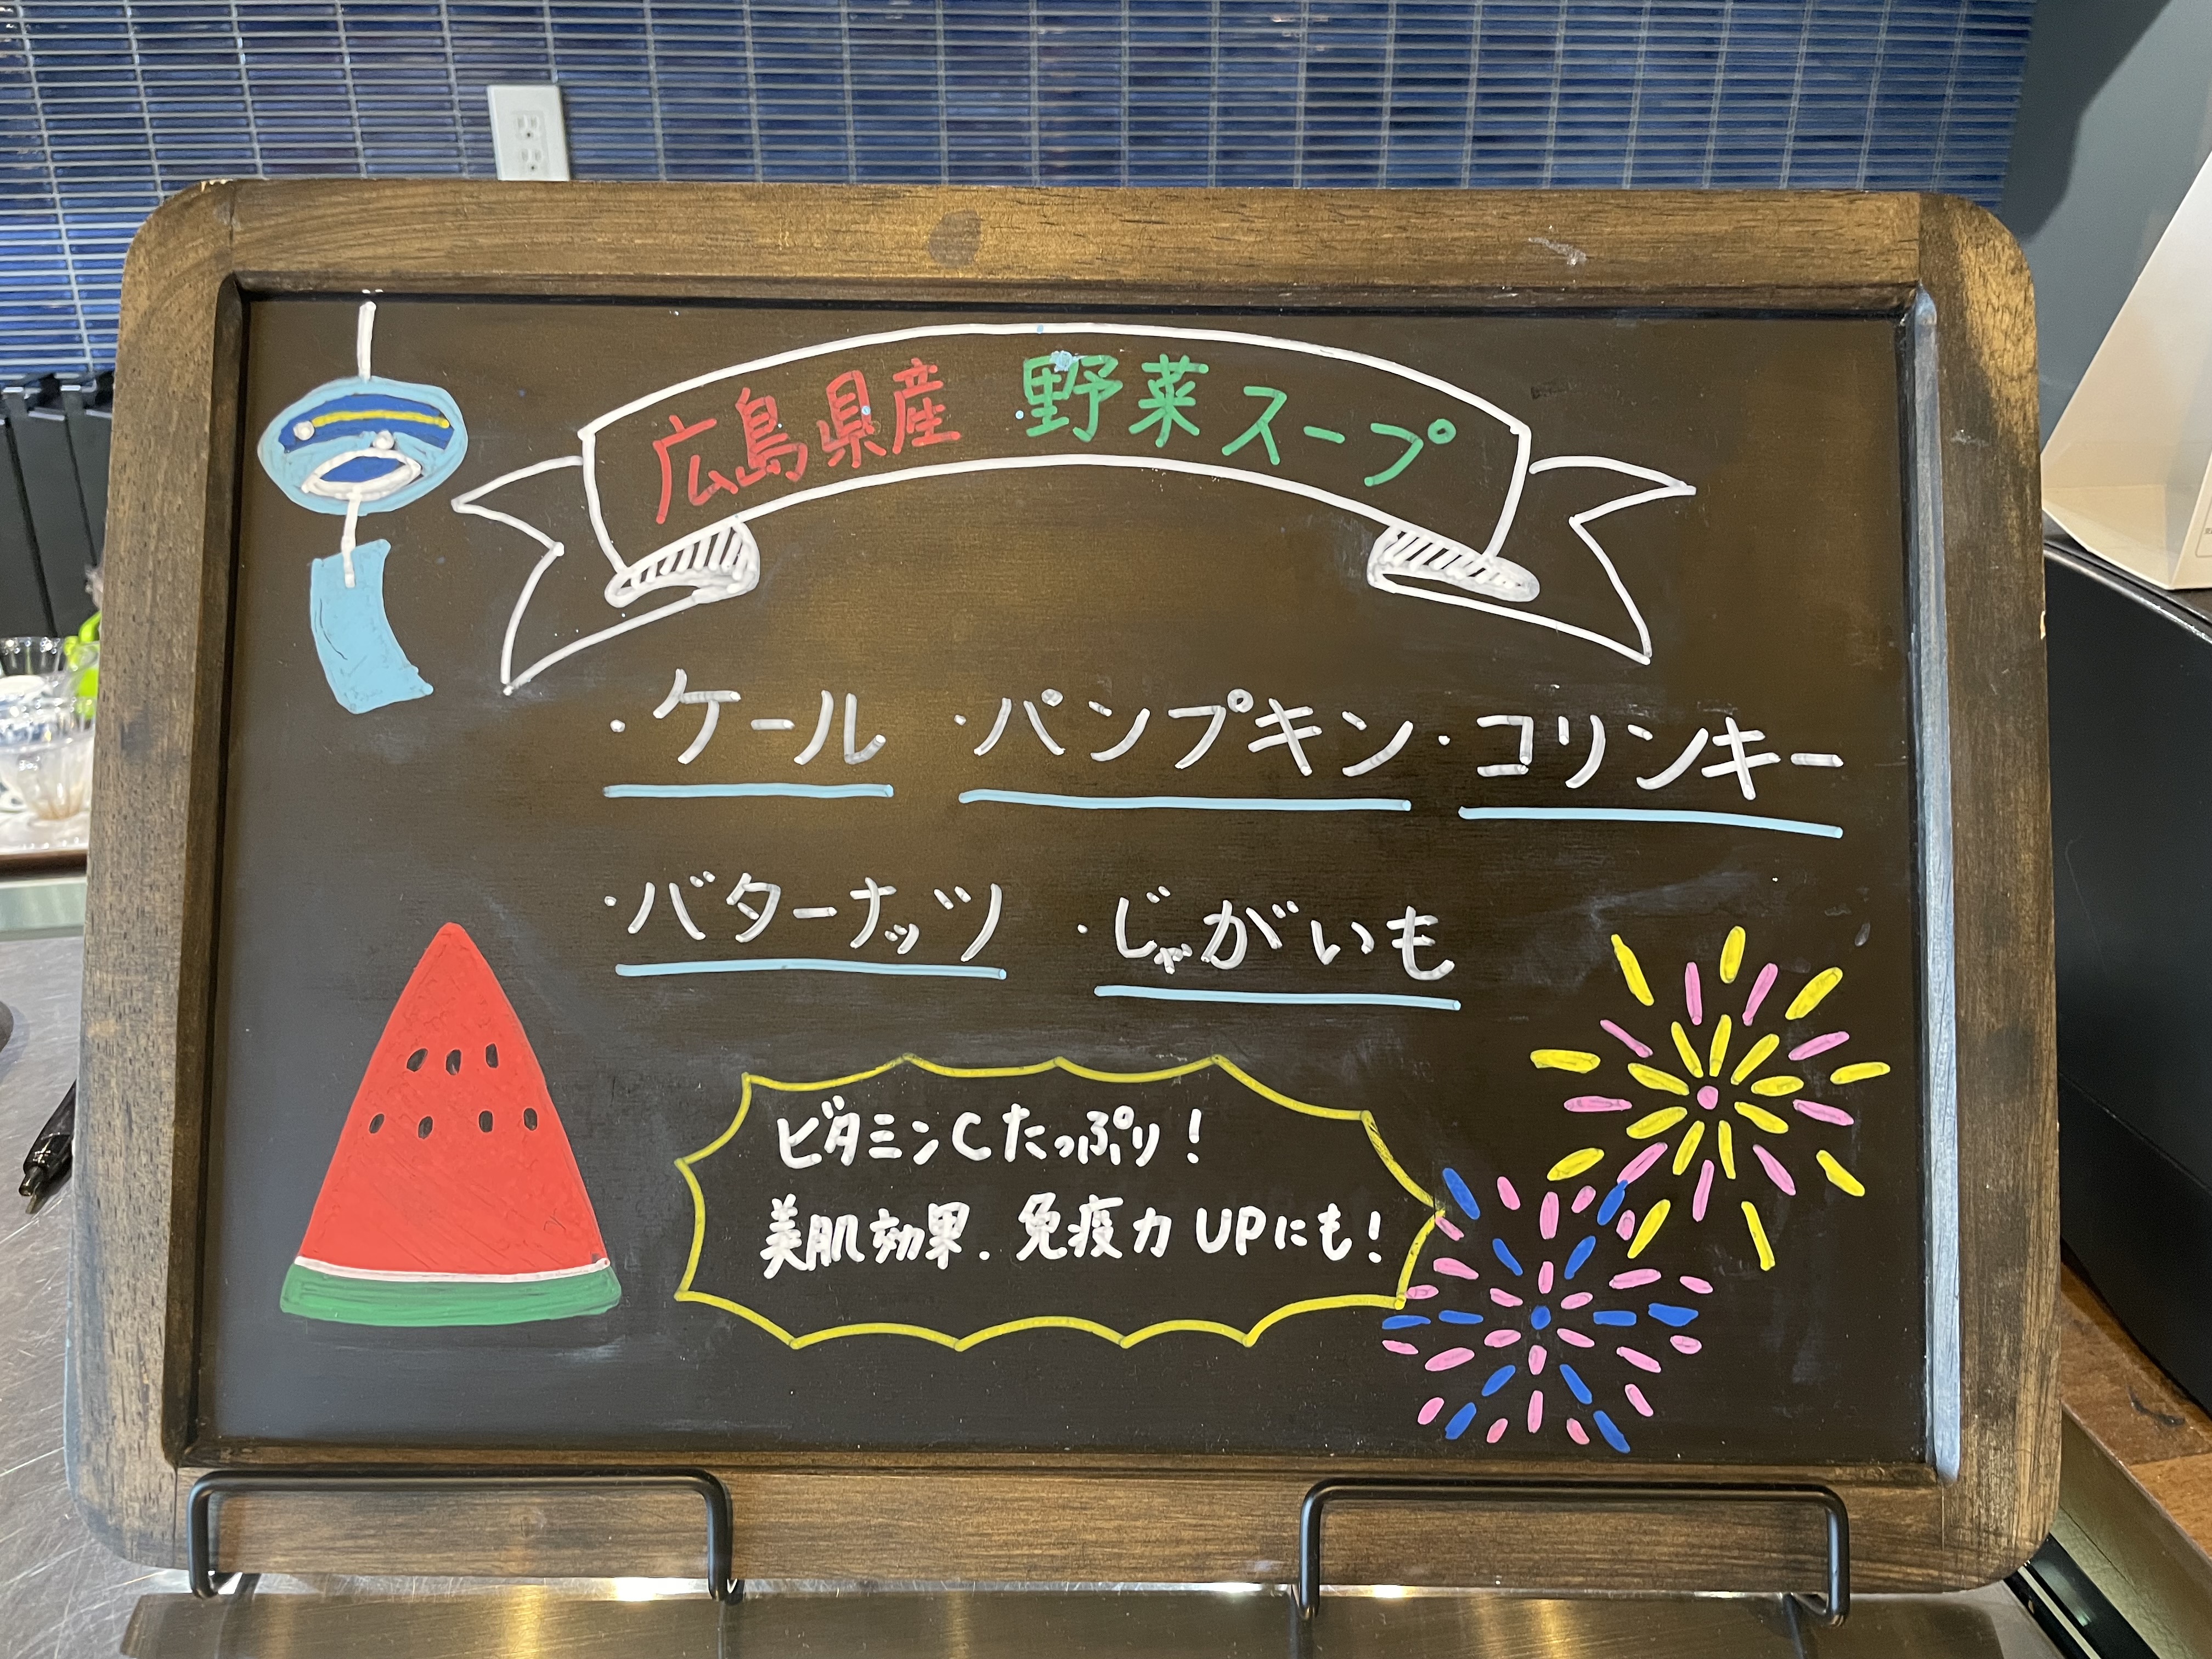 広島県産 野菜スープ
・ケール ・パンプキン ・コリンキー
・バターナッツ ・じゃがいも
ビタミンCたっぷり!
美肌効果、免疫力UPにも!